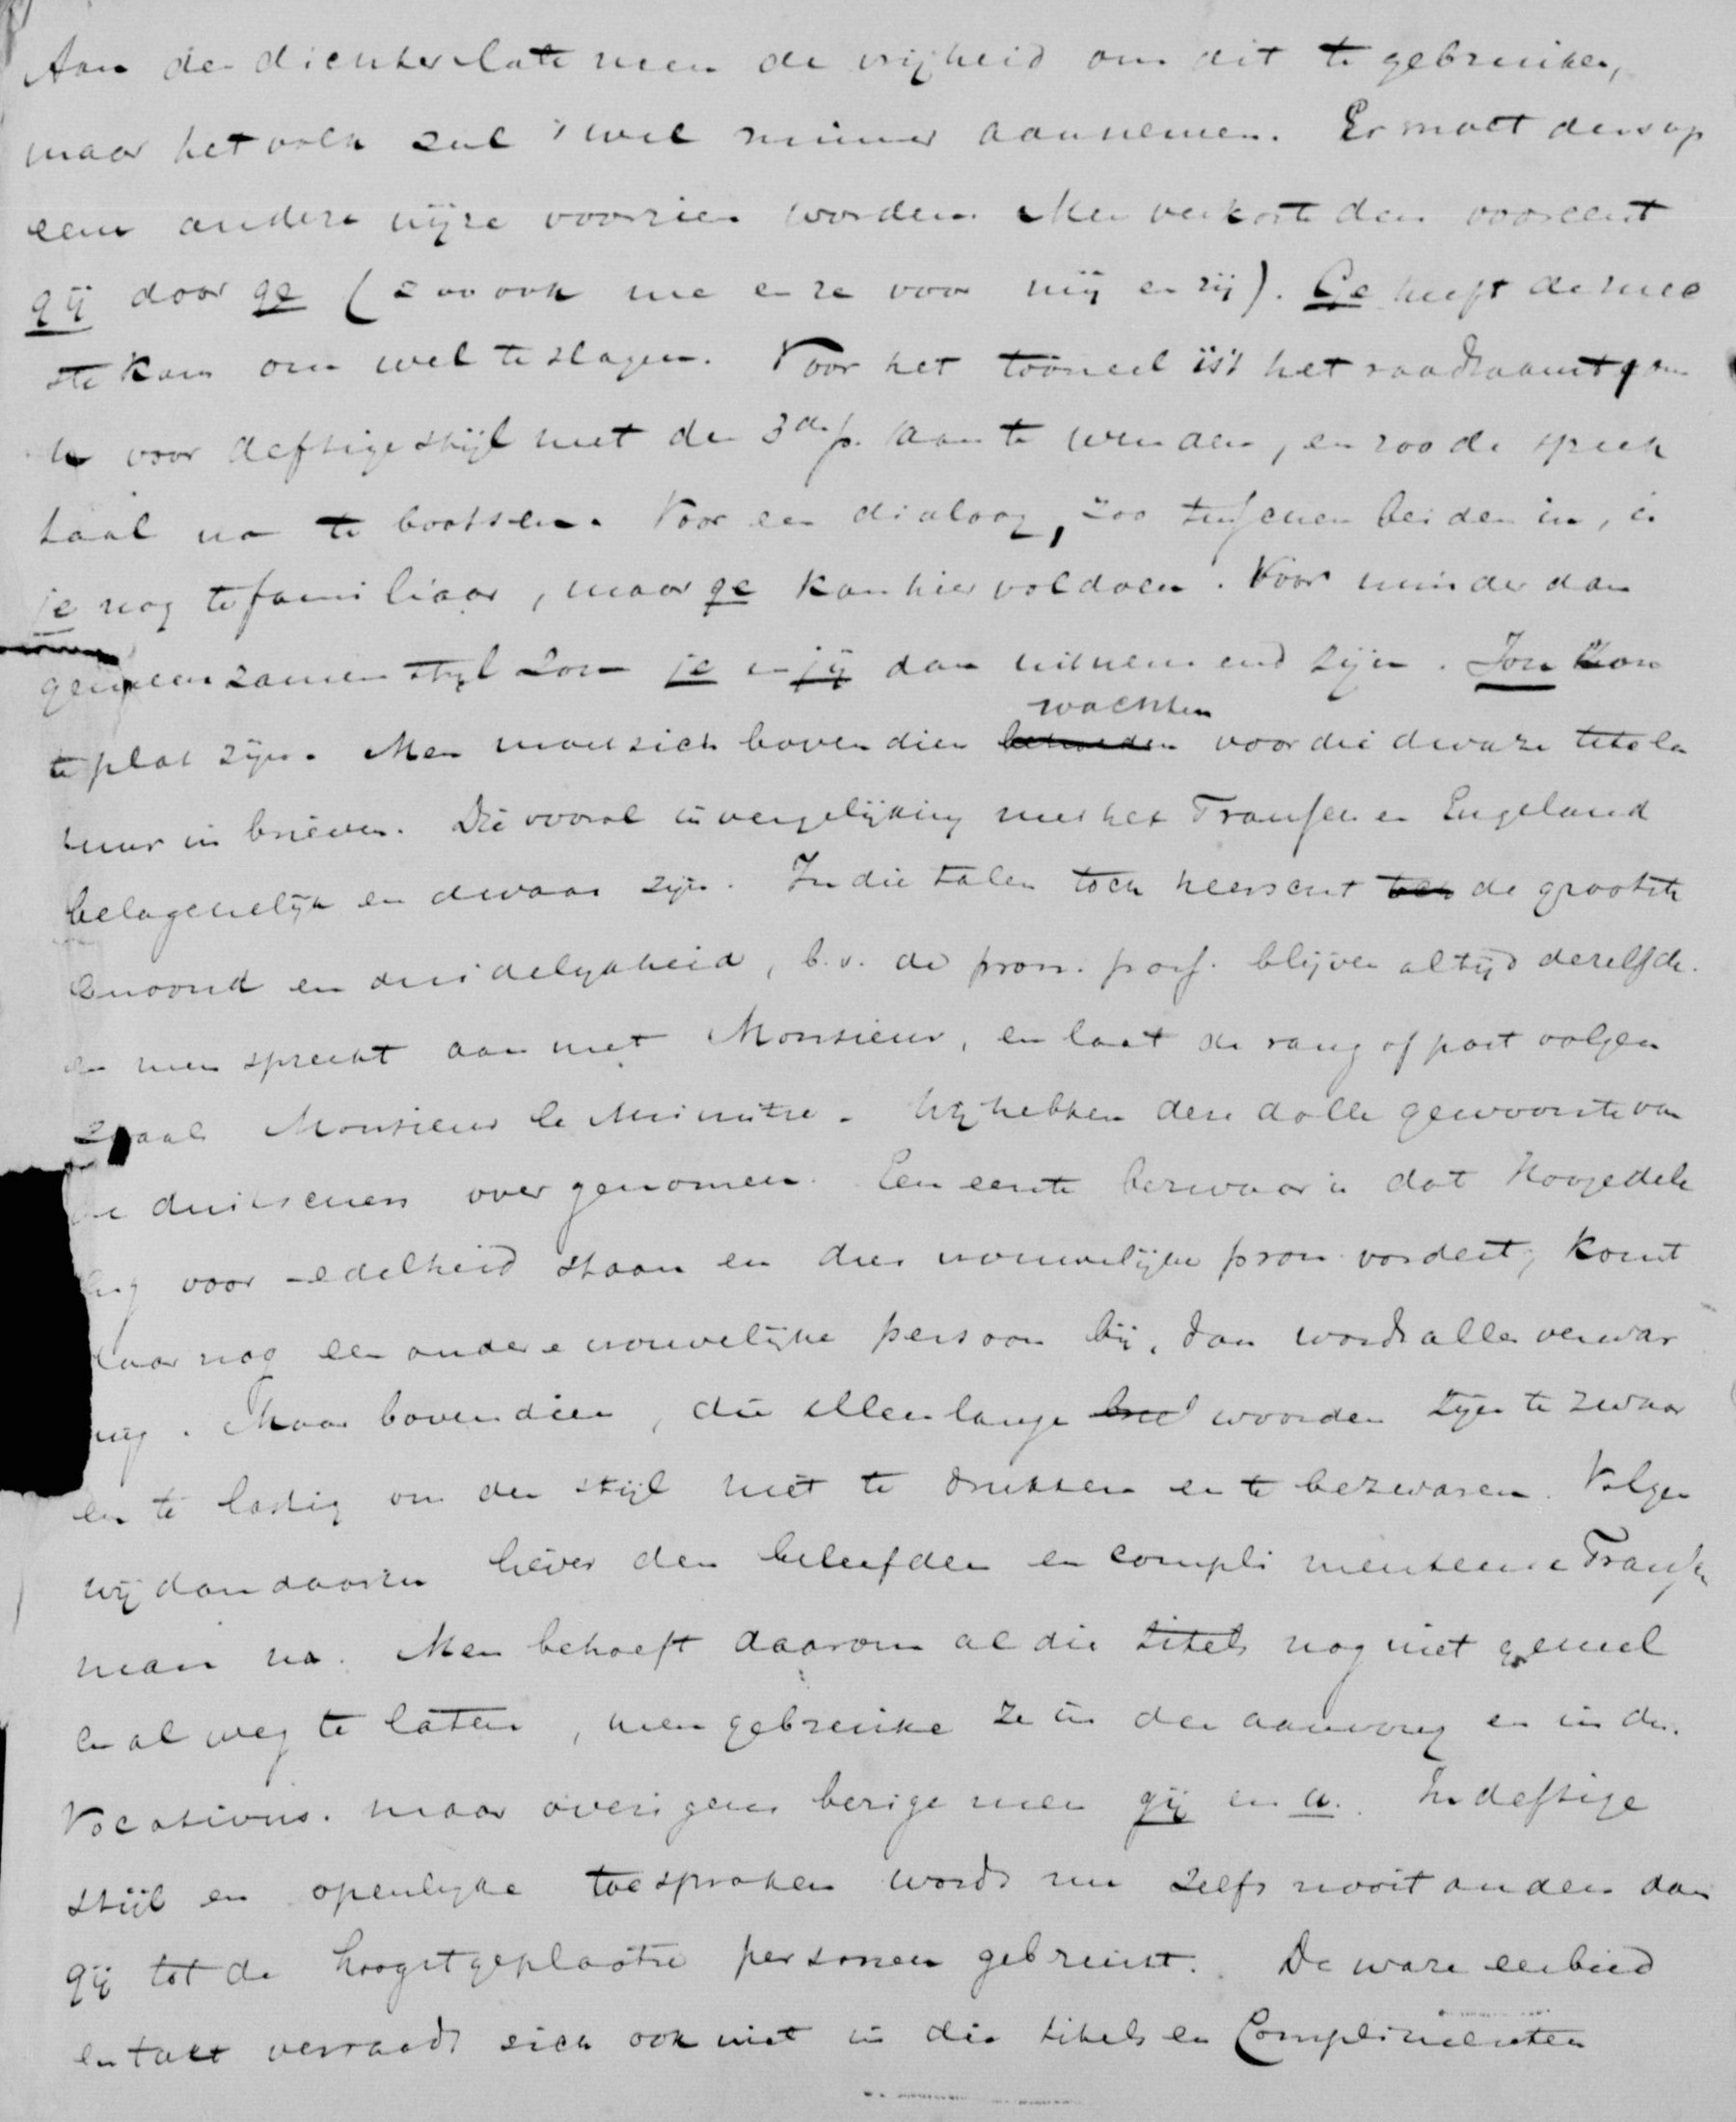 Aan den dichter late men de vrijheid om dit te gebruiken,
maar het volk zal 't wel nimmer aannemen. Er moet dus op
eene andere wijze voorzien worden. Men verkorte dan vooreerst
gij door ge (zoo ook me en ze voor mij en zij). Ge heeft de mee
ste kans om wel te slagen. Voor het tooneel is 't het raadzaamst om
voor deftige stijl met den 3de p. aan te wenden, en zoo de spreek
taal na te bootsen. Voor een dialoog, zoo tusschen beiden in, is
je nog te familiaar, maar ge kan hier voldoen. Voor minder dan
gemeenzamen stijl zou je en jij dan uitnemend zijn. Jou kan
te plat zijn. Men moet zich bovendien wachten voor die dwaze titula
tuur in brieven. Die vooral in vergelijking met het Fransch en Engeland
belagchelijk en dwaas zijn. In die talen toch heerscht de grootste
eenvoud en duidelijkheid, b.v. de pron. poss. blijven altijd dezelfde.
en men spreekt aan met Monsieur, en laat de rang of post volgen
zoals Monsieur le Ministre. Wij hebben deze dolle gewoonte van
de duitschers overgenomen. Een eerste bezwaar is dat Hoogedele
voor -edelheid staan en dus vrouwelijke pron. vordert; komt
daar nog een andere vrouwelijke persoon bij, dan wordt alles verwar
ring. Maar bovendien, die ellenlange woorden zijn te zwaar
en te lastig om den stijl niet te drukken en te bezwaren. Volgen
wij dan daarin liever den beleefden en complimenteuse Fransch
man na. Men behoeft daarom al die titels nog niet geheel
en al weg te laten, men gebruike ze in den aanvang en in den
Vocativus. maar overigens bezige men gij en u. In deftige
stijl en openlijke toespraken wordt nu zelfs nooit anders dan
gij tot de hoogstgeplaatste personen gebruikt. De ware eerbied
en takt verraadt zich ook niet in die titels en Complimenten